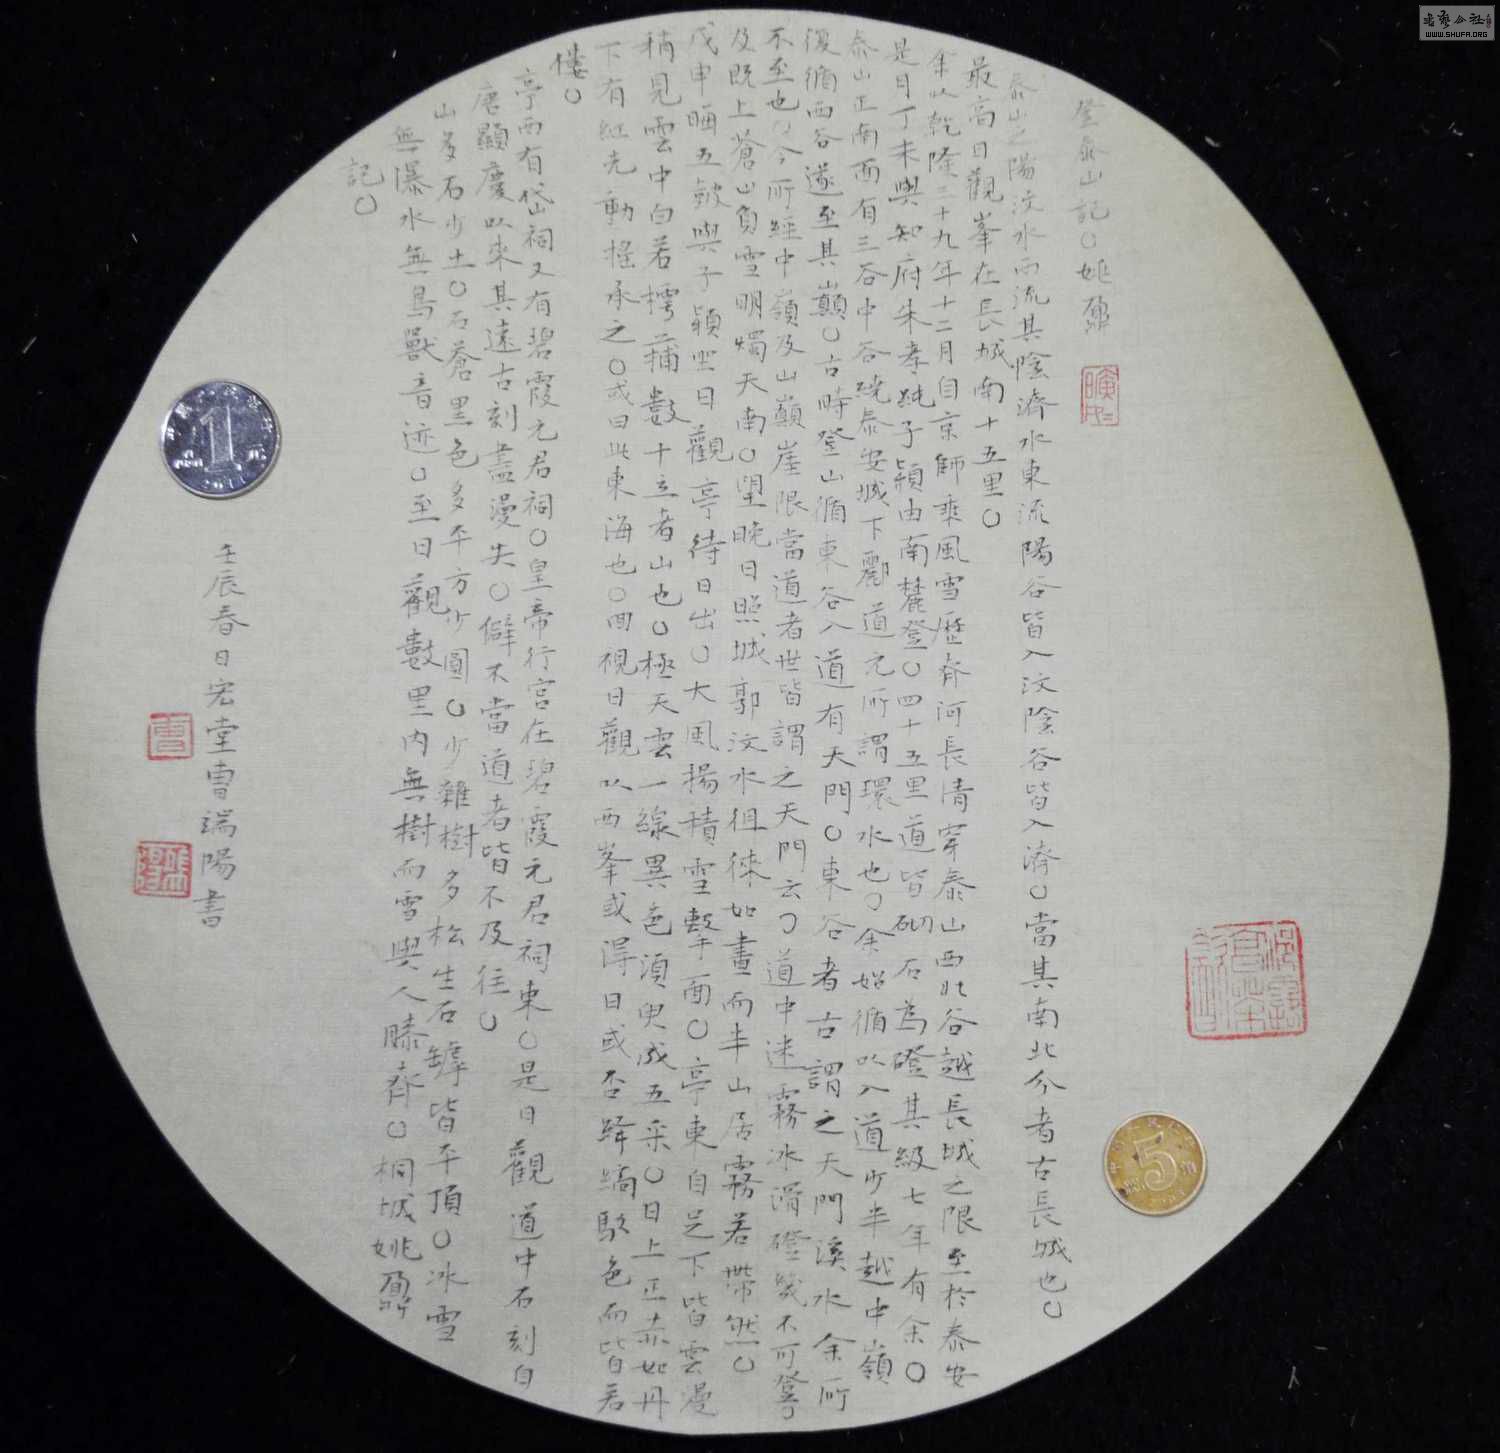 登泰山記〇姚鼐
泰山之陽汶水西流其陰濟水東流陽谷皆入汶陰谷皆入濟〇當其南北分者古長城也〇
最高日觀峯在長城南十五里〇
余以乾隆三十九年十二月自京師乘風雪歷齊河長清穿泰山西北谷越長城之限至於泰安
是月丁未與知府朱孝純子潁由南麓登〇四十五里道皆砌石為磴其級七年有余〇
泰山正南面有三谷中谷繞泰安城下酈道元所謂環水也〇余始循以入道少半越中嶺
復循西谷遂至其巔〇古時登山循東谷入道有天門〇東谷者古謂之天門溪水余所
不至也〇今所經中嶺及山巔崖限當道者世皆謂之天門云〇道中迷霧冰滑磴幾不可登
及既上蒼山負雪明燭天南〇望晚日照城郭汶水徂徠如畫而半山居霧若帶然〇
戊申晦五鼓與子潁坐日觀亭待日出〇大風揚積雪擊面〇亭東自足下皆雲漫
稍見雲中白若樗蒱數十立者山也〇極天雲一線異色須臾成五采〇日上正赤如丹
下有紅光動搖承之〇或曰此東海也〇回視日觀以西峯或得日或否絳縞駁色而皆若
僂〇
亭西有岱祠又有碧霞元君祠〇皇帝行宮在碧霞元君祠東〇是日觀道中石刻自
唐顯慶以來其遠古刻盡漫失〇僻不當道者皆不及往〇
山多石少土〇石蒼黑色多平方少圓〇少雜樹多松生石罅皆平頂〇冰雪
無瀑水無鳥獸音迹〇至日觀數里內無樹而雪與人膝齊〇桐城姚鼐
記〇
壬辰春日宏堂曹瑞陽書
曹
瑞陽
1
元
2011
5
角
WWW.SHUFA.ORG